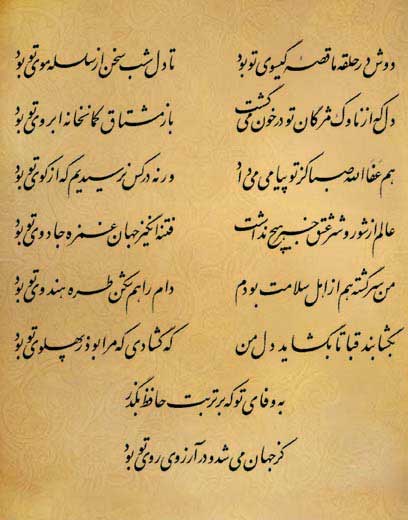 دوش در حلقه ما قصه گیسوی تو بود تا دل شب سخن از سلسله موی تو بود
دل که از ناوک مژگان تو در خون می‌گشت باز مشتاق کمانخانه ابروی تو بود
هم عفاالله صبا کز تو پیامی می‌داد ور نه در کس نرسیدیم که از کوی تو بود
عالم از شور و شر عشق خبر هیچ نداشت فتنه انگیز جهان غمزه جادوی تو بود
من سرگشته هم از اهل سلامت بودم دام راهم شکن طره هندوی تو بود
بگشا بند قبا تا بگشاید دل من که گشادی که مرا بود ز پهلوی تو بود
به وفای تو که بر تربت حافظ بگذر
کز جهان می‌شد و در آرزوی روی تو بود